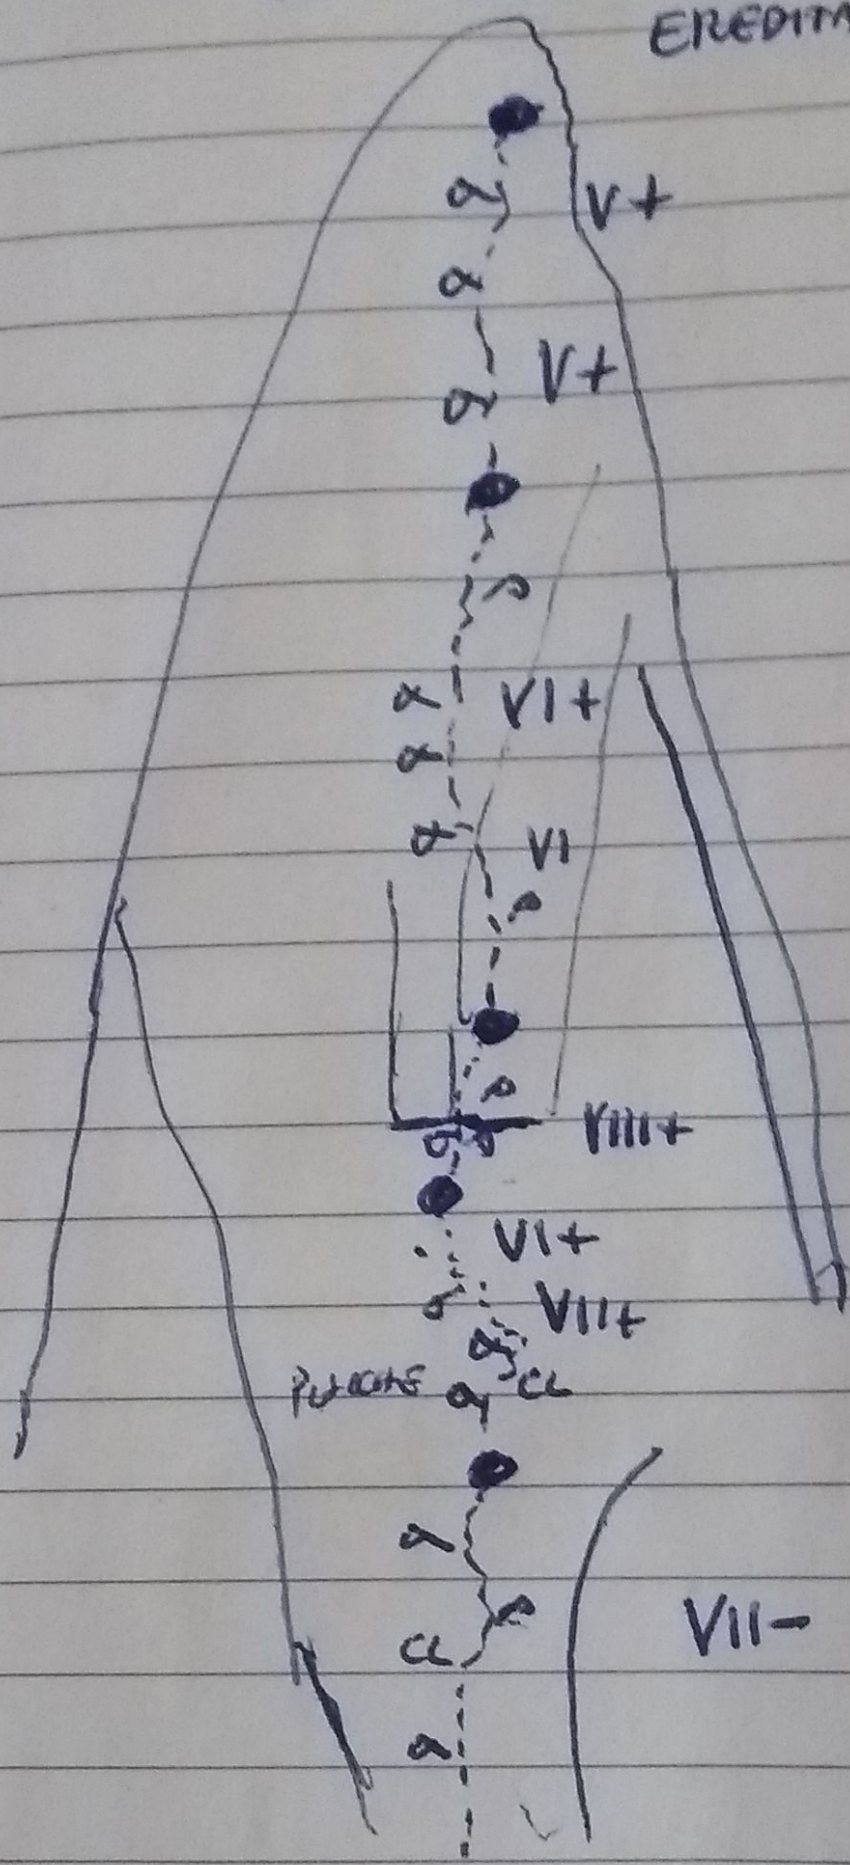 EREDITA
V+
V+
VI+
VI
VIII+
VI+
VII+
CL
VII-
CL